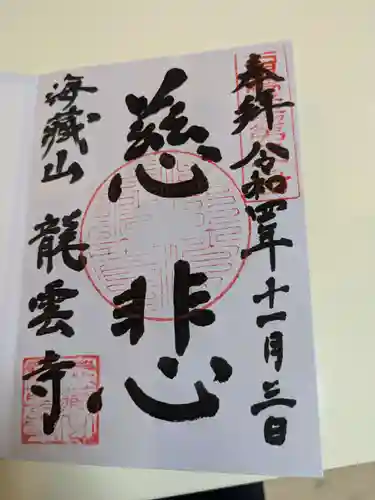 奉拜 令和四年十一月三日
慈悲心
海藏山 龍雲寺